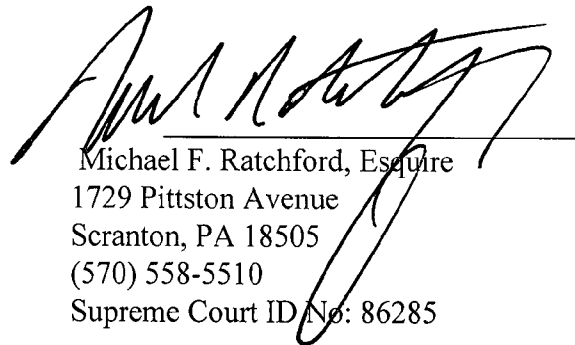 Michael F. Ratchford, Esquire
1729 Pittston Avenue
Scranton, PA 18505
(570) 558-5510
Supreme Court ID No: 86285